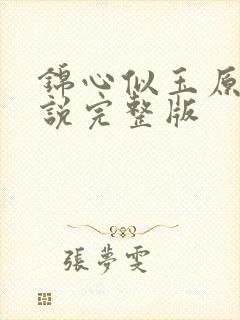 錦心似玉原
說完整版
張夢雯